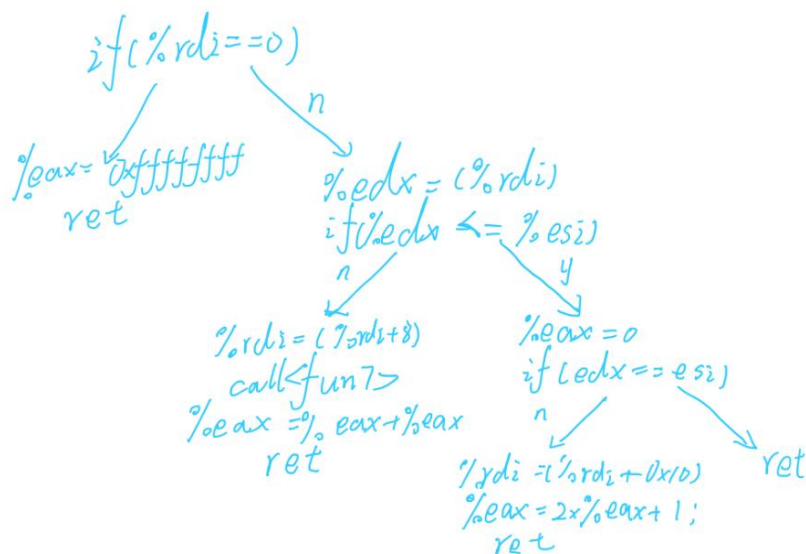 if(%rdi==0)
n
%eax=0xffffffff
ret
%edx=(%rdi)
if(%edx <= %esi)
n
y
%rdi=(%rdi+8)
call<fun7>
%eax=%eax+%eax
ret
%eax=0
if(edx==esi)
n
%rdi=(%rdi+0x10)
%eax=2x%eax+1;
ret
ret